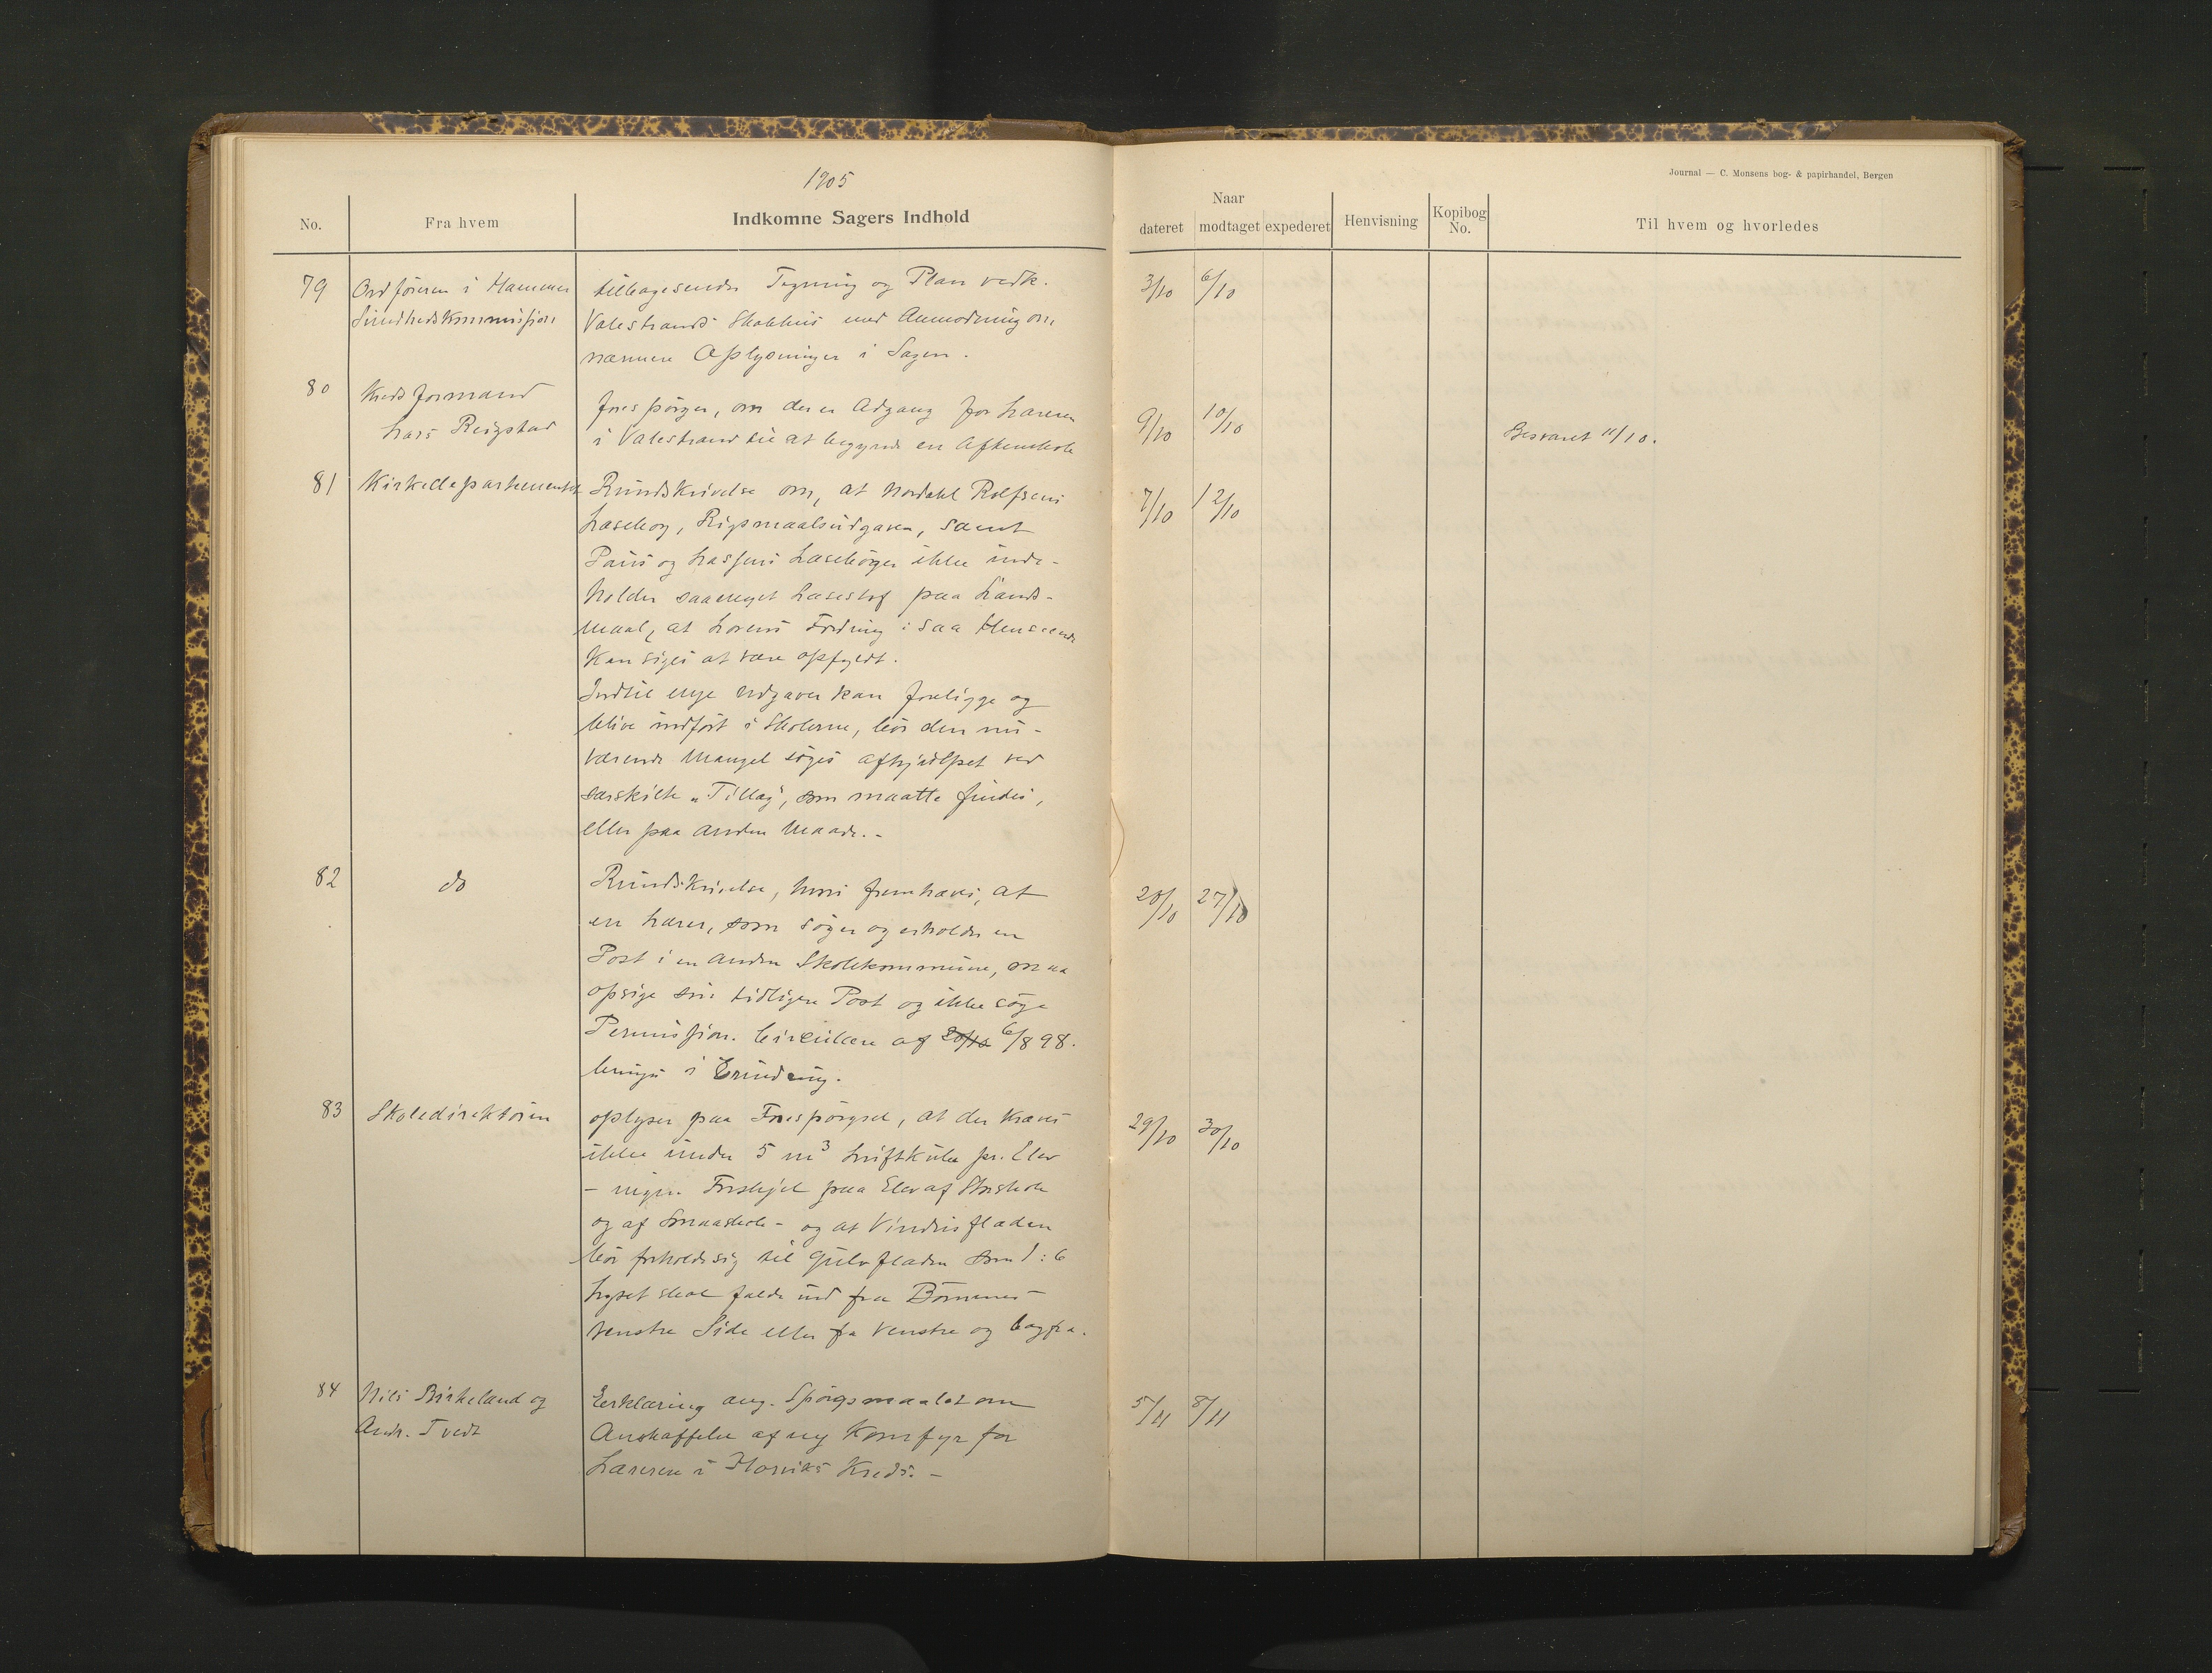 1905
Journal — C. Monsens bog- & papirhandel, Bergen
No. Fra hvem Indkomne Sagers Indhold
Naar
dateret modtaget expederet Henvisning Kopibog No. Til hvem og hvorledes
79 Ordføreren i Hammer tilbagesender Tegning og Plan vedk. 3/10 6/10
Sundhedskommission Valestrands Skolehus med Anmodning om
nærmere Oplysninger i Sagen.
80 Kredsformand
Lars Reigstad
forespørger, om der er Adgang for Læreren 9/10 10/10
i Valestrand til at begynde en Aftenskole Besvaret 11/10.
81 Kirkedepartementet Rundskrivelse om, at Nordahl Rolfsens 7/10 12/10
Læsebog, Rigsmaalsudgaven, samt
Pauss og Lassens Læsebøger ikke inde-
holder saameget Læsestof paa Lands-
maal, at Lovens Fordring i saa Henseende
kan siges at være opfyldt.
Indtil nye Udgaver kan foreligge og
blive indført i Skolerne, bør den nu-
værende Mangel søges afhjulpet ved
særskilte "Tillæg", som maatte findes,
eller paa anden Maade.-
82 do Rundskrivelse, hvori fremhæves, at 27/10
en Lærer, som søger og erholder en
Post i en anden Skolekommune, maa
opsige sin tidligere Post og ikke søge
Permission. Cirkulære af 20/10 6/8 98.
bringes i Erindring.
83 Skoledirektøren oplyser paa Forespørgsel, at der kræves 29/10 30/10
ikke under 5 m³ Luftkube pr. Elev
- ingen Forskjel paa Elev af Storskole
og af Smaaskole - og at Vinduesfladen
bør forholde sig til Gulvfladen som 1:6
Lyset skal falde ind fra Børnenes
venstre Side eller fra venstre og bagfra.
84 Nils Birkeland og Erklæring ang. Spørgsmaalet om 5/11 8/11
Andr. Tvedt Anskaffelse af ny Komfyr for
Læreren i Horviks Kreds.-